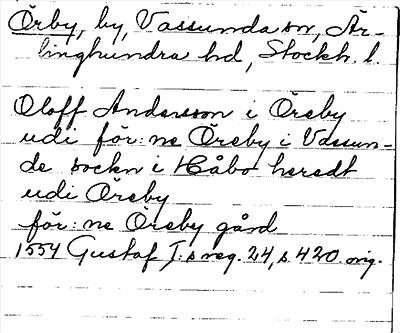 Örby, by, Vassunda sn, Är-
linghundra hd, Stockh. l.
Oloff Andersson i Öreby
udi för: ne Öreby i Vassun-
de sockn i Håbo heredt
udi Öreby
för: ne Öreby gård
1554 Gustaf I:s reg. 24, s. 420. orig.